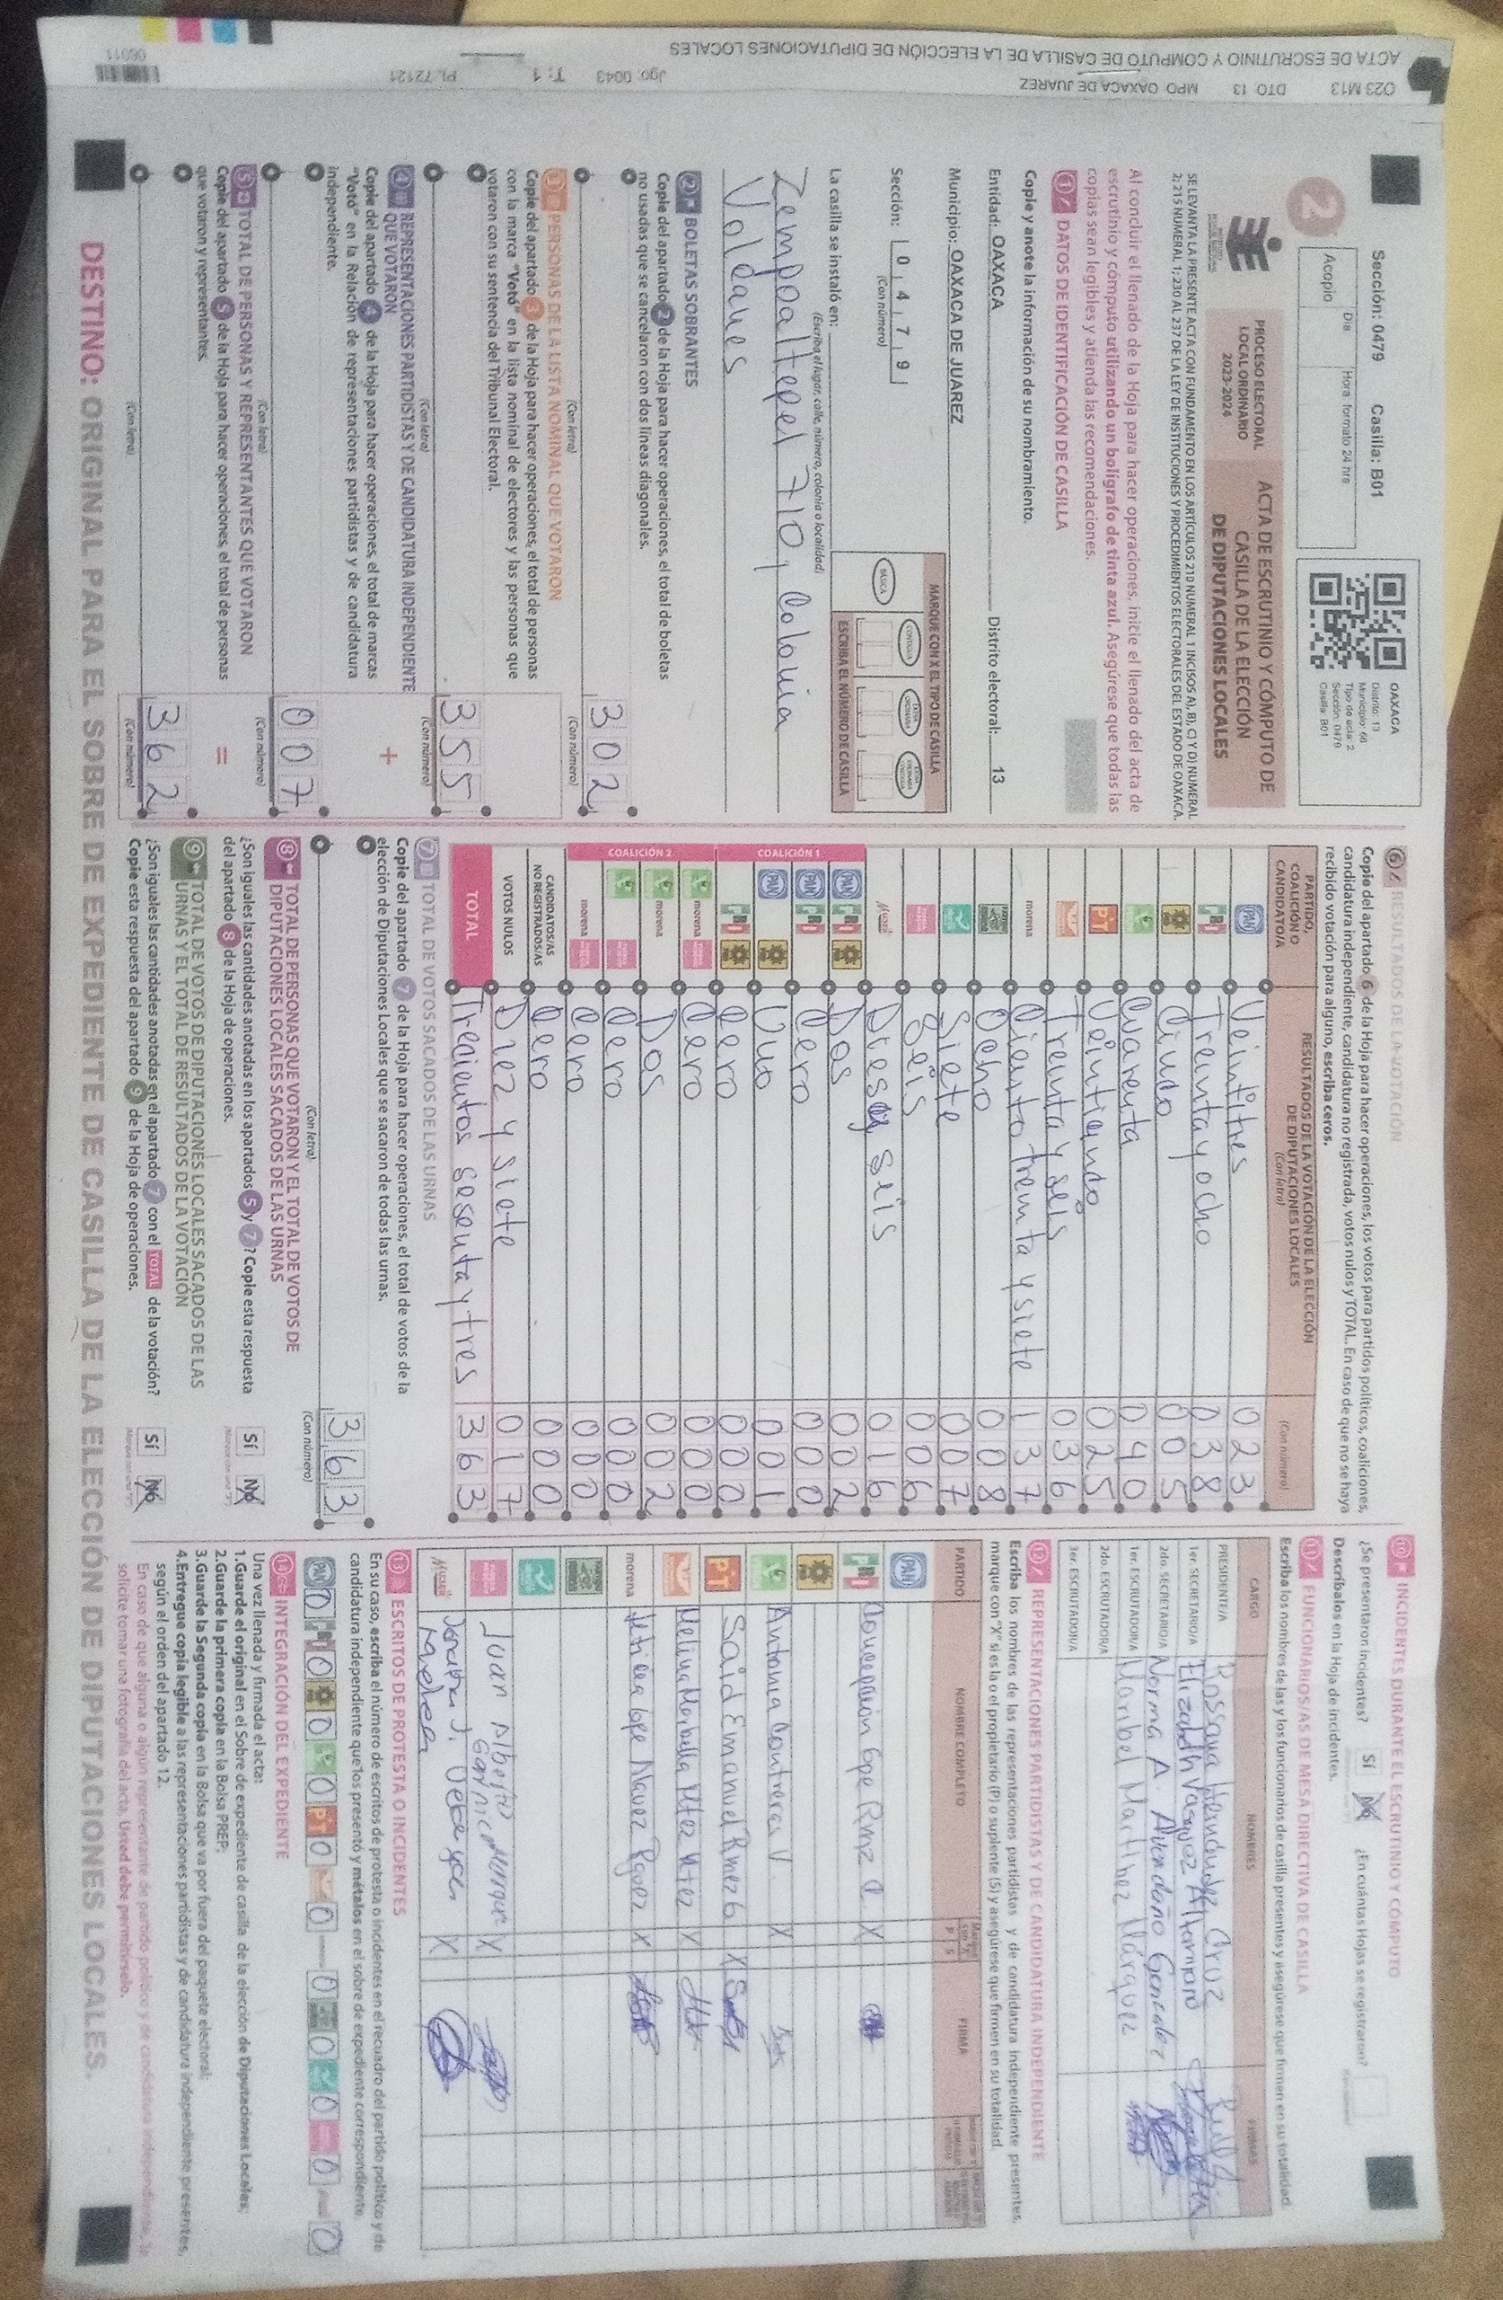 Sección: 0479 Casilla: B01
Día Hora: formato 24 hrs
Acopio
OAXACA
Distrito: 13
Municipio: 68
Tipo de acta: 2
Sección: 0479
Casilla: B01
2
PROCESO ELECTORAL
LOCAL ORDINARIO
2023-2024
ACTA DE ESCRUTINIO Y CÓMPUTO DE
CASILLA DE LA ELECCIÓN
DE DIPUTACIONES LOCALES
Al concluir el llenado de la Hoja para hacer operaciones, inicie el llenado del acta de
escrutinio y cómputo utilizando un bolígrafo de tinta azul. Asegúrese que todas las
copias sean legibles y atienda las recomendaciones.
1 DATOS DE IDENTIFICACIÓN DE CASILLA
Copie y anote la información de su nombramiento.
Entidad: OAXACA Distrito electoral: 13
Municipio: OAXACA DE JUAREZ
Sección: 0 4 7 9
(Con número)
MARQUE CON X EL TIPO DE CASILLA
BÁSICA
ESCRIBA EL NÚMERO DE CASILLA
La casilla se instaló en:
(Escriba el lugar, calle, número, colonia o localidad)
Zempoaltepel 710, Colonia
Volcanes
2 BOLETAS SOBRANTES
Copie del apartado 2 de la Hoja para hacer operaciones, el total de boletas
no usadas que se cancelaron con dos líneas diagonales.
302
(Con letra) (Con número)
3 PERSONAS DE LA LISTA NOMINAL QUE VOTARON
Copie del apartado 3 de la Hoja para hacer operaciones, el total de personas
con la marca "Votó" en la lista nominal de electores y las personas que
votaron con su sentencia del Tribunal Electoral.
355
(Con letra) (Con número)
4 REPRESENTACIONES PARTIDISTAS Y DE CANDIDATURA INDEPENDIENTE
QUE VOTARON
Copie del apartado 4 de la Hoja para hacer operaciones, el total de marcas
"Votó" en la Relación de representaciones partidistas y de candidatura
independiente.
+
007
(Con letra) (Con número)
5 TOTAL DE PERSONAS Y REPRESENTANTES QUE VOTARON
Copie del apartado 5 de la Hoja para hacer operaciones, el total de personas
que votaron y representantes.
=
362
(Con letra) (Con número)
6 RESULTADOS DE LA VOTACIÓN
Copie del apartado 6 de la Hoja para hacer operaciones, los votos para partidos políticos, coaliciones,
candidatura independiente, candidatura no registrada, votos nulos y TOTAL. En caso de que no se haya
recibido votación para alguno, escriba ceros.
PARTIDO,
COALICIÓN O
CANDIDATO/A
RESULTADOS DE LA VOTACIÓN DE LA ELECCIÓN
DE DIPUTACIONES LOCALES
(Con letra) (Con número)
PAN Veintitres 023
PRI Treinta y ocho 038
Cinco 005
Cuarenta 040
PT Veinticinco 025
Treinta y seis 036
morena Ciento treinta y siete 137
Ocho 008
Siete 007
Seis 006
Dieciseis 016
COALICIÓN 1
PAN PRI Dos 002
PAN PRI Cero 000
PAN Uno 001
PRI Cero 000
COALICIÓN 2
morena Cero 000
morena Dos 002
Cero 000
morena Cero 000
CANDIDATOS/AS
NO REGISTRADOS/AS Cero 000
VOTOS NULOS Diez y siete 017
TOTAL Trecientos sesenta y tres 363
7 TOTAL DE VOTOS SACADOS DE LAS URNAS
Copie del apartado 7 de la Hoja para hacer operaciones, el total de votos de la
elección de Diputaciones Locales que se sacaron de todas las urnas.
363
(Con letra) (Con número)
8 TOTAL DE PERSONAS QUE VOTARON Y EL TOTAL DE VOTOS DE
DIPUTACIONES LOCALES SACADOS DE LAS URNAS
¿Son iguales las cantidades anotadas en los apartados 5 y 7? Copie esta respuesta
del apartado 8 de la Hoja de operaciones.
Sí No
9 TOTAL DE VOTOS DE DIPUTACIONES LOCALES SACADOS DE LAS
URNAS Y EL TOTAL DE RESULTADOS DE LA VOTACIÓN
¿Son iguales las cantidades anotadas en el apartado 7 con el TOTAL de la votación?
Copie esta respuesta del apartado 9 de la Hoja de operaciones.
Sí No
10 INCIDENTES DURANTE EL ESCRUTINIO Y CÓMPUTO
¿Se presentaron incidentes? Sí No ¿En cuántas Hojas se registraron?
Descríbalos en la Hoja de incidentes.
11 FUNCIONARIOS/AS DE MESA DIRECTIVA DE CASILLA
Escriba los nombres de las y los funcionarios de casilla presentes y asegúrese que firmen en su totalidad.
CARGO NOMBRES FIRMAS
PRESIDENTE/A Rossana Hernández Cruz
1er. SECRETARIO/A Elizabeth Vasquez Altamirano
2do. SECRETARIO/A Norma A. Avendaño González
1er. ESCRUTADOR/A Maribel Martínez Márquez
2do. ESCRUTADOR/A
3er. ESCRUTADOR/A
12 REPRESENTACIONES PARTIDISTAS Y DE CANDIDATURA INDEPENDIENTE
Escriba los nombres de las representaciones partidistas y de candidatura independiente presentes,
marque con "X" si es la o el propietario (P) o suplente (S) y asegúrese que firmen en su totalidad.
PARTIDO NOMBRE COMPLETO P S FIRMA
PAN
PRI Concepción Gpe Rmz C. X
Antonia Contreras V. X
PT Said Emanuel Rmez G X
Melina Marbella Mtez Mtez X
morena Leticia Gpe Navez Rguez X
Juan Alberto
Garnica Manrique X
X
13 ESCRITOS DE PROTESTA O INCIDENTES
En su caso, escriba el número de escritos de protesta o incidentes en el recuadro del partido político y de
candidatura independiente que los presentó y métalos en el sobre de expediente correspondiente.
PAN 0 PRI 0 0 0 PT 0 0 morena 0 0 0 0 0
14 INTEGRACIÓN DEL EXPEDIENTE
Una vez llenada y firmada el acta:
1.Guarde el original en el Sobre de expediente de casilla de la elección de Diputaciones Locales;
2.Guarde la primera copia en la Bolsa PREP;
3.Guarde la Segunda copia en la Bolsa que va por fuera del paquete electoral;
4.Entregue copia legible a las representaciones partidistas y de candidatura independiente presentes,
según el orden del apartado 12.
En caso de que alguna o algún representante de partido político y de candidatura independiente, le
solicite tomar una fotografía del acta, Usted debe permitírselo.
DESTINO: ORIGINAL PARA EL SOBRE DE EXPEDIENTE DE CASILLA DE LA ELECCIÓN DE DIPUTACIONES LOCALES.
ACTA DE ESCRUTINIO Y COMPUTO DE CASILLA DE LA ELECCIÓN DE DIPUTACIONES LOCALES
O23 M13 DTO. 13 MPO. OAXACA DE JUAREZ Jgo. 0043 T: 1 PL.72121
06011